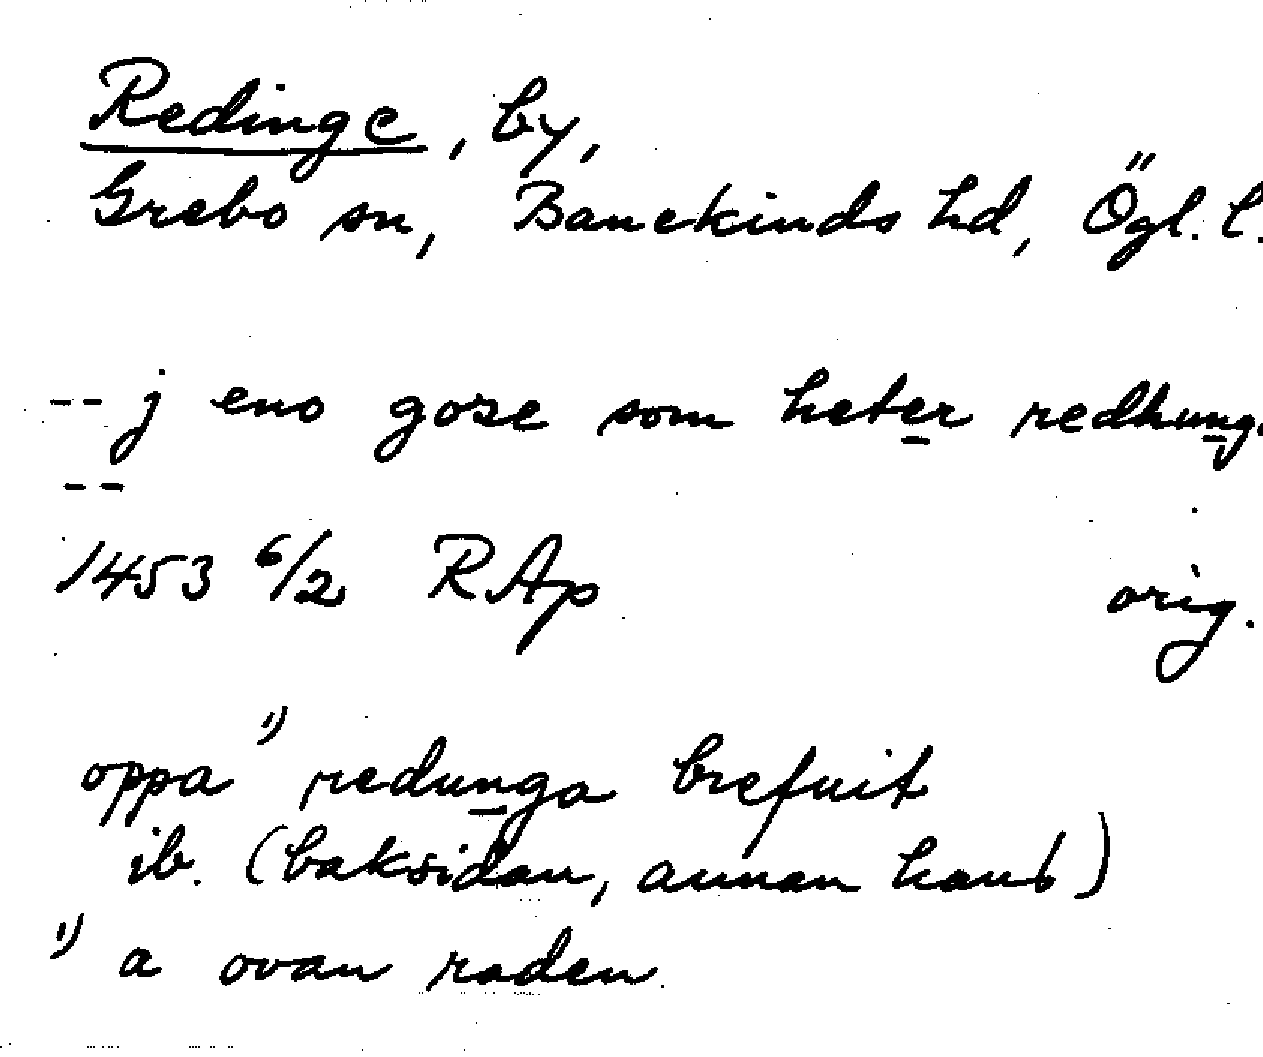 Redinge, by,
Grebo sn, Banekinds hd, Ögl. l.
-- j eno goze som heter redhung.
--
1453 6/2 RAp orig.
oppa 1) redunga brefuit
ib. (baksidan, annan hand)
1) a ovan raden.